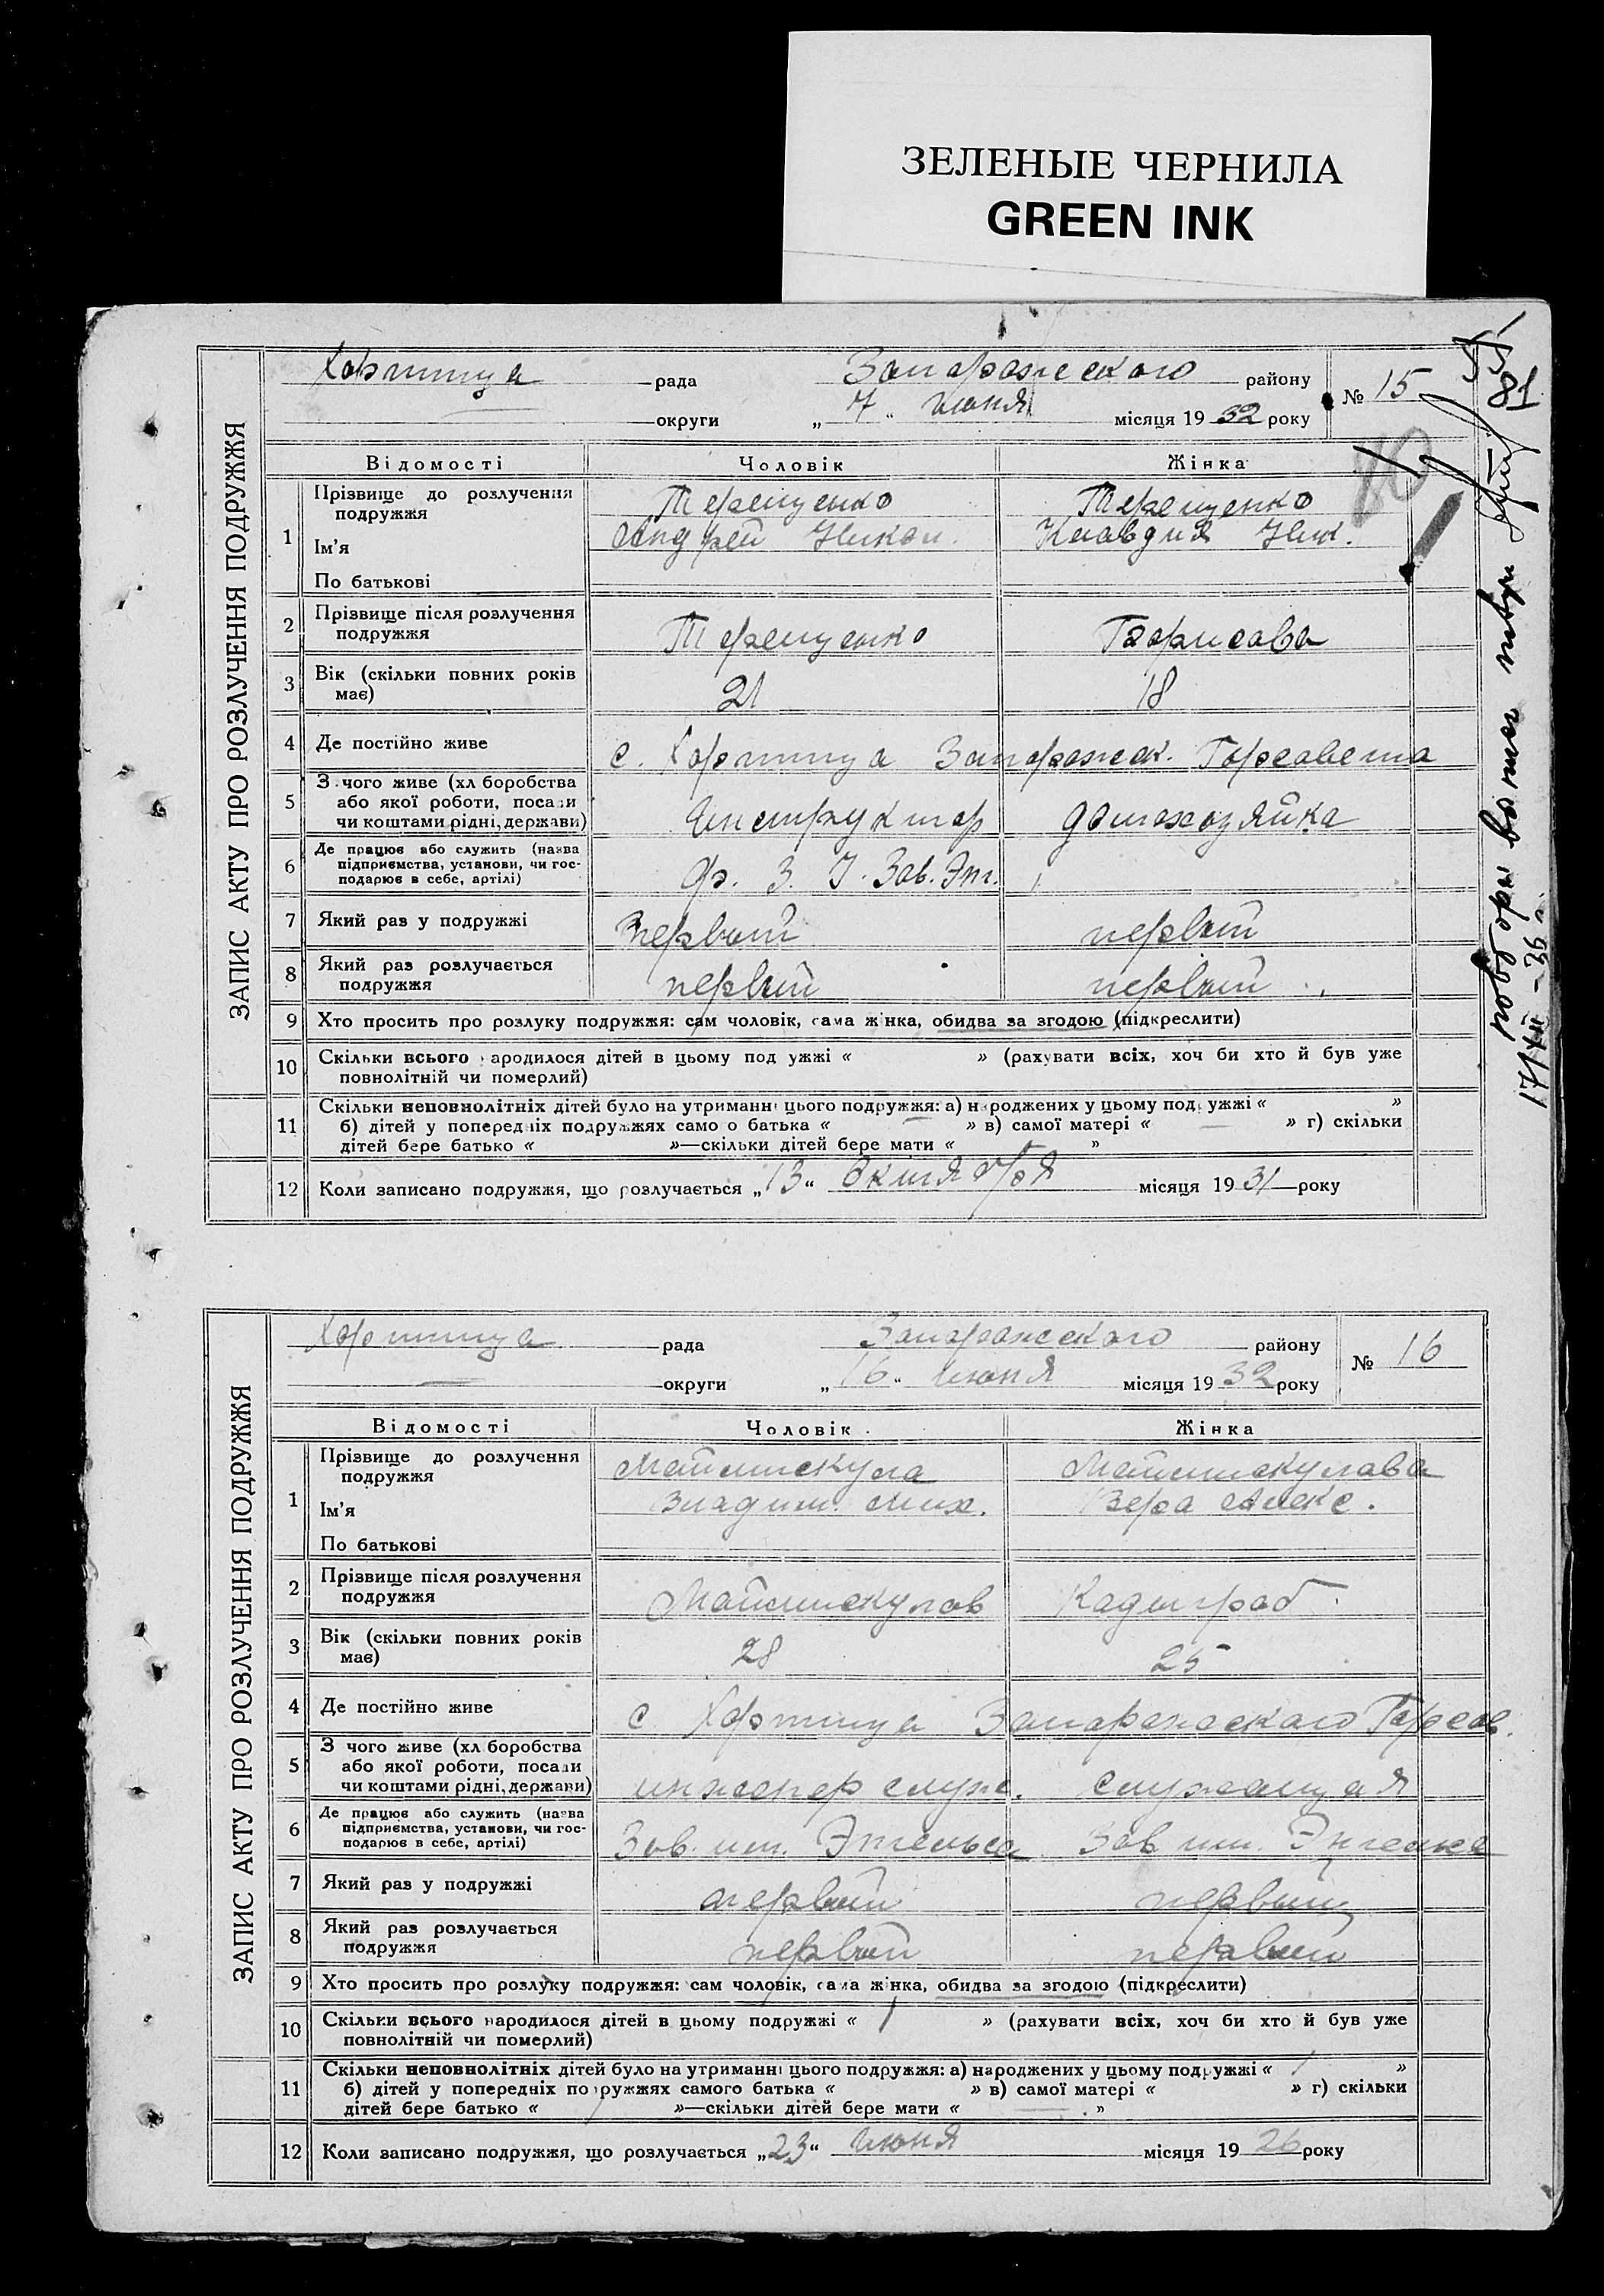 ЗЕЛЕНЫЕ ЧЕРНИЛА
GREEN INK
81
ЗАПИС АКТУ ПРО РОЗЛУЧЕННЯ ПОДРУЖЖЯ
Хортица рада Запорожского району № 15
округи „ 7 “ июня місяця 19 32 року
Відомості Чоловік Жінка
80
1 Прізвище до розлучення подружжя Терещенко Терещенко
Ім’я Андрей Никол. Клавдия Ник.
По батькові
2 Прізвище після розлучення подружжя Терещенко
3 Вік (скільки повних років має) 21 18
4 Де постійно живе с. Хортица Запорожск. Горсовета
5 З чого живе (хліборобства або якої роботи, посади чи коштами рідні, держави) Инструктор домохозяйка
6 Де працює або служить (назва підприємства, установи, чи господарює в себе, артілі) Ф. З. У. Зав. Энг.
7 Який раз у подружжі первый первый
8 Який раз розлучається подружжя первый первый
9 Хто просить про розлуку подружжя: сам чоловік, сама жінка, обидва за згодою (підкреслити)
10 Скільки всього народилося дітей в цьому подружжі « » (рахувати всіх, хоч би хто й був уже
повнолітній чи померлий)
11 Скільки неповнолітніх дітей було на утриманні цього подружжя: а) народжених у цьому подружжі « »
б) дітей у попередніх подружжях самого батька « » в) самої матері « — » г) скільки
дітей бере батько « »—скільки дітей бере мати « »
12 Коли записано подружжя, що розлучається „13“ Октября місяця 19 31 року
17/XII–36 г.
ЗАПИС АКТУ ПРО РОЗЛУЧЕННЯ ПОДРУЖЖЯ
Хортица рада Запорожского району № 16
округи „ 16 “ июня місяця 19 32 року
Відомості Чоловік Жінка
1 Прізвище до розлучення подружжя
Ім’я Владим. Мих. Вера Алекс.
По батькові
2 Прізвище після розлучення подружжя Кадыграб
3 Вік (скільки повних років має) 28 25
4 Де постійно живе с Хортица Запорожского Горсов.
5 З чого живе (хліборобства або якої роботи, посади чи коштами рідні, держави) инженер служ. служащая
6 Де працює або служить (назва підприємства, установи, чи господарює в себе, артілі) Зав. им. Энгельса Зав им. Энгельса
7 Який раз у подружжі первый первый
8 Який раз розлучається подружжя первый первый
9 Хто просить про розлуку подружжя: сам чоловік, сама жінка, обидва за згодою (підкреслити)
10 Скільки всього народилося дітей в цьому подружжі « 1 » (рахувати всіх, хоч би хто й був уже
повнолітній чи померлий)
11 Скільки неповнолітніх дітей було на утриманні цього подружжя: а) народжених у цьому подружжі « 1 »
б) дітей у попередніх подружжях самого батька « » в) самої матері « » г) скільки
дітей бере батько « »—скільки дітей бере мати « — »
12 Коли записано подружжя, що розлучається „23“ июня місяця 19 26 року